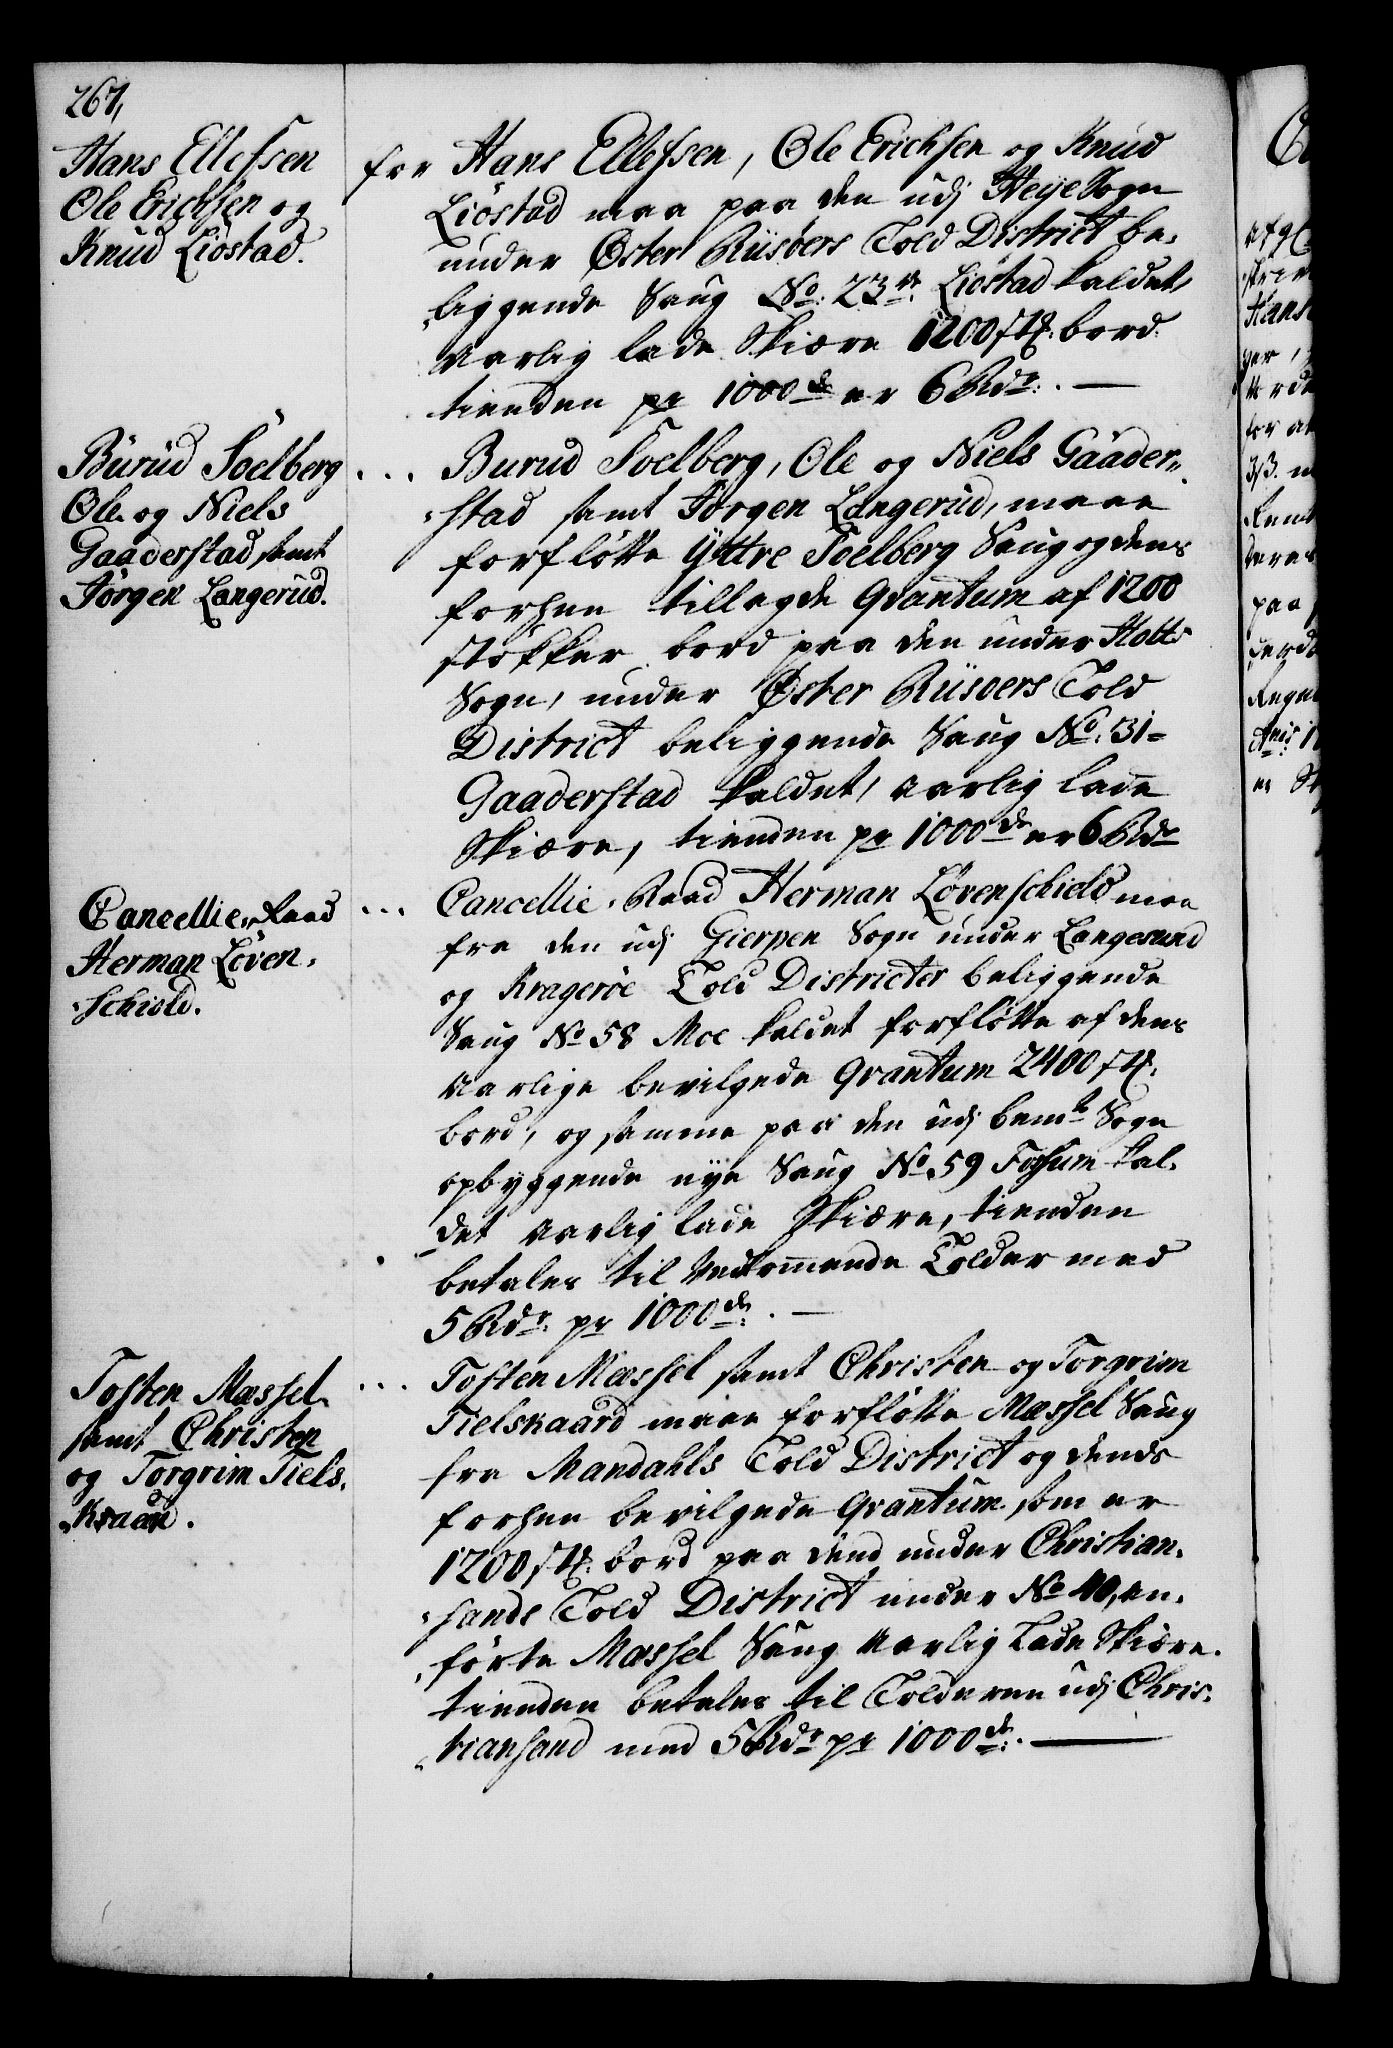 267,
Hans Ellefsen
Ole Erichsen og
Knud Liöstad.
for Hans Ellefsen, Ole Erichsen og Knud
Liöstad maa paa den udj Heye Sogn
under Öster Riisöers Told District be-
liggende Saug No: 23de Liöstad kaldet,
aarlig lade Skiære 1200 stk. bord
tienden pr 1000de er 6 Rdr: . —
Burud Soelberg
Ole og Niels
Gaaderstad samt
Jörgen Langerud.
... Burud Soelberg, Ole og Niels Gaader-
stad samt Jörgen Langerud, maae
forflötte Yttre Soelberg Saug og dens
forhen tillagde Qvantum af 1200
stökker bord paa den under Holts
Sogn, under Öster Riisoers Told
District beliggende Saug No: 31-
Gaaderstad kaldet, aarlig lade
Skiære, tienden pr 1000de er 6 Rdr
Cancellie, Raad
Herman Löven-
schiold.
... Cancellie, Raad Herman Lövenschield maa
fra den udj Gierpen Sogn under Langesund
og Kragerøe Told Districter beliggende
Saug No 58 Moe kaldet forflötte af dens
aarlige bevilgede Qvantum 2400 stk.
bord, og samme paa den udj bemte Sogn
opbyggende nye Saug No. 59 Fossum kal-
det aarlig lade Skiære, tienden
betales til Vedkommende Tolder med
5 Rdr: pr 1000de: . —
Tosten Mæssel
samt Christen
og Torgrim Tiels-
kaard.
... Tosten Mæssel samt Christen og Torgrim
Tielskaard maae forflötte Mæssel Saug
fra Mandahls Told District og dends
forhen bevilgede Qvantum som er
1200 stk. bord paa dend under Christian-
sands Told District under No 40, an-
förte Mæssel Saug aarlig Lade Skiære.
tienden betales til Tolderen udj Chris-
tiansand med 5 Rdr pr 1000de: . —